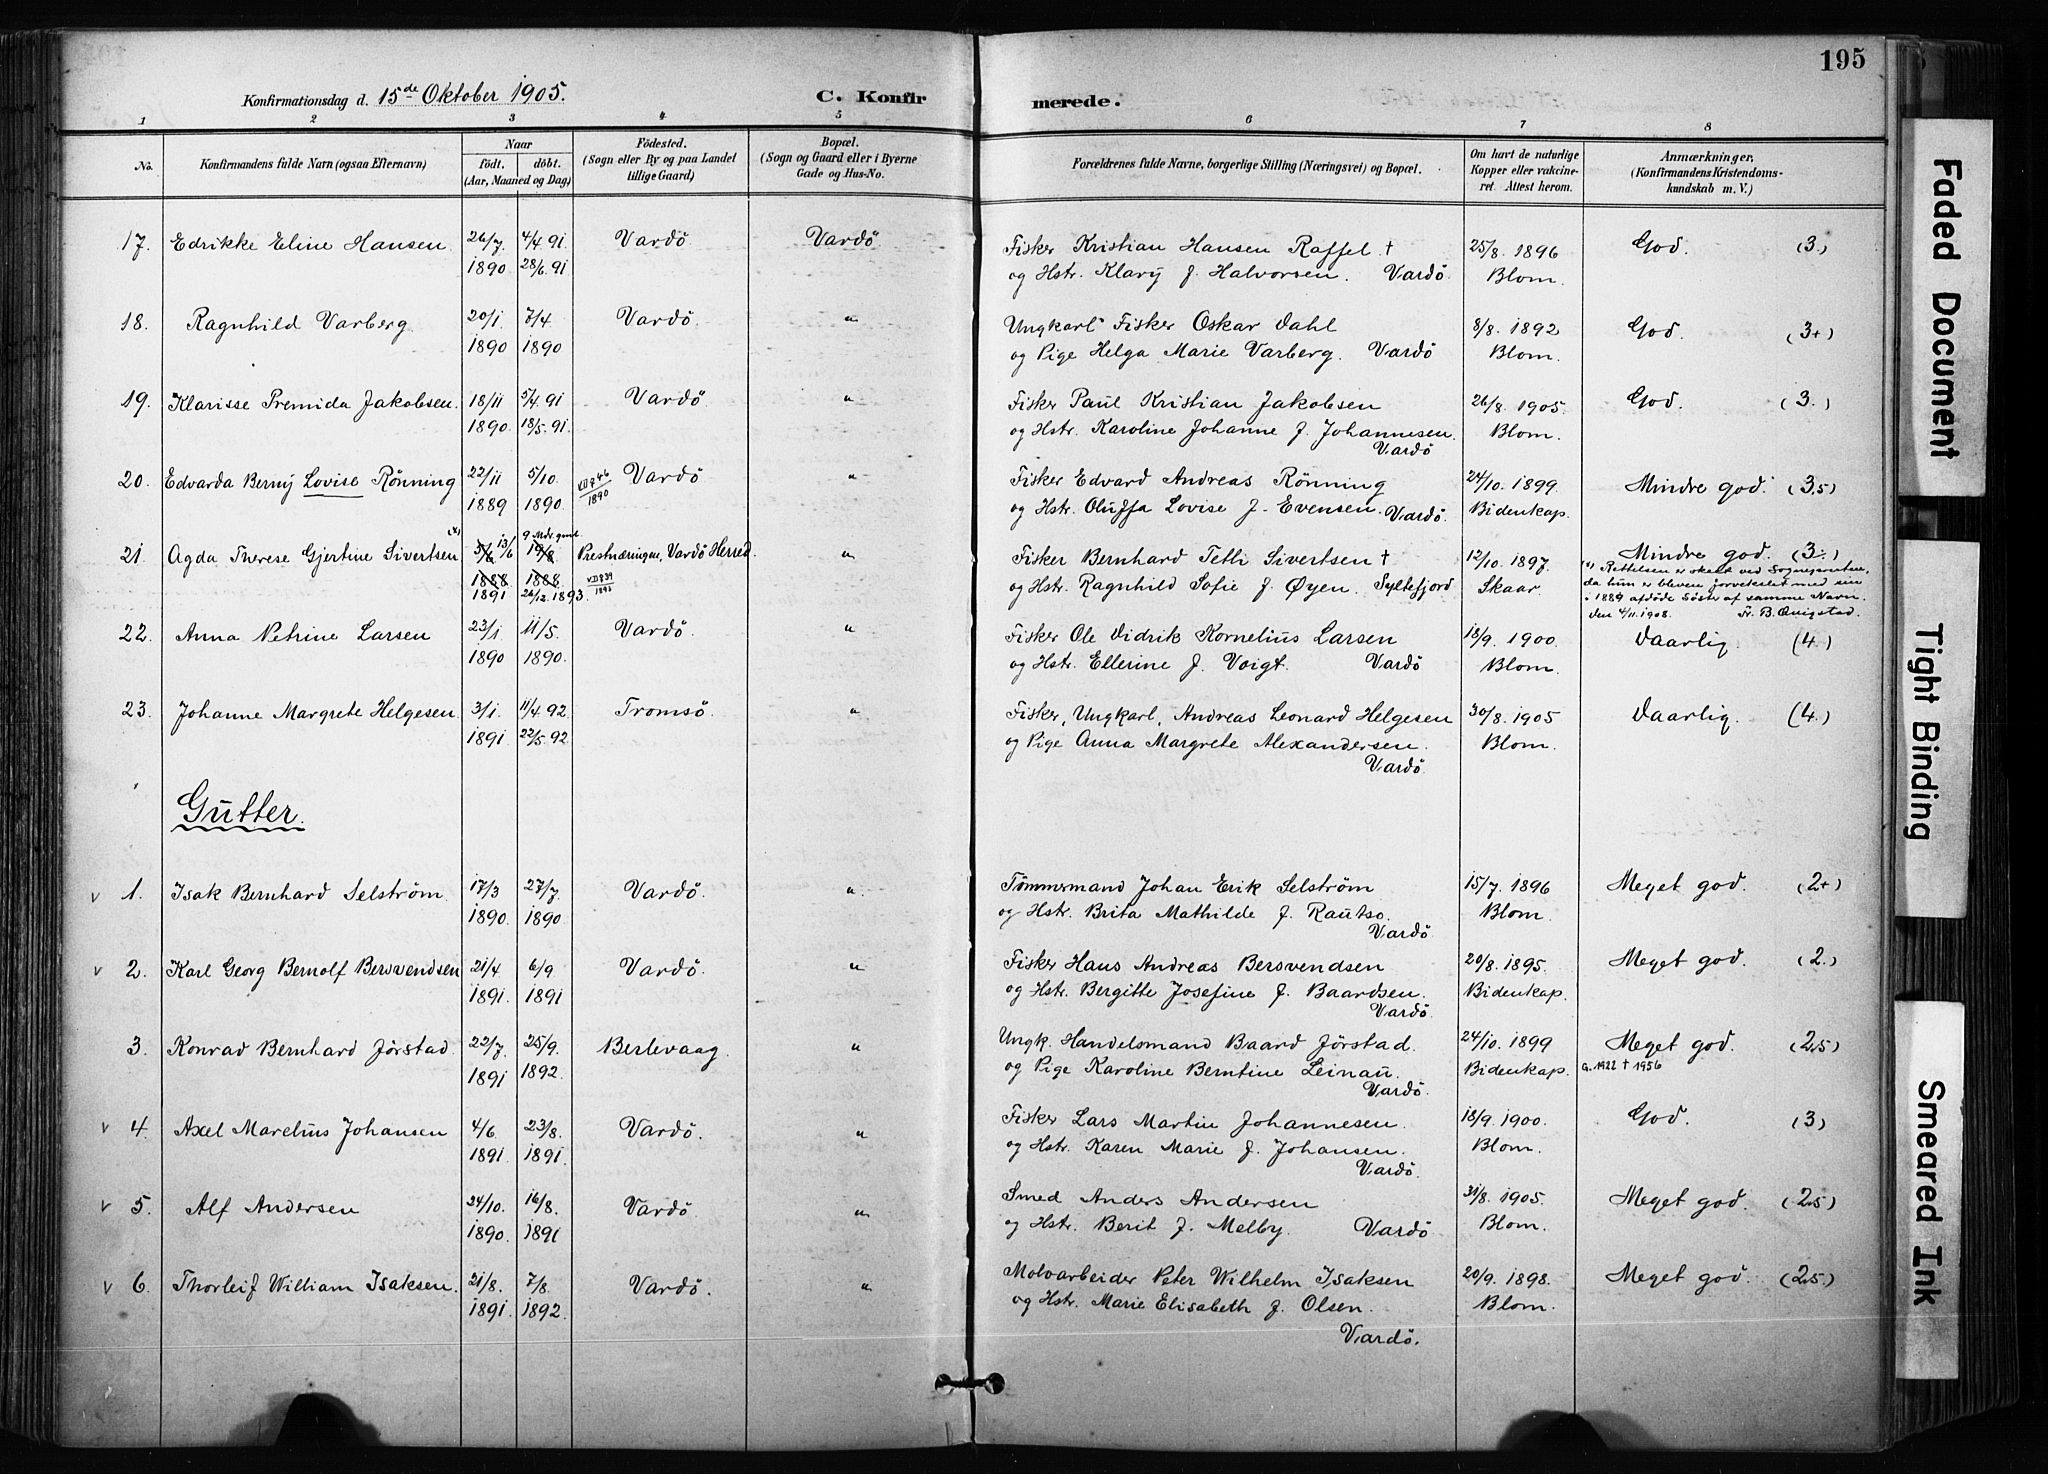 195
Konfirmationsdag d. 15de Oktober 1905. C. Konfirmerede.
1 2 3 4 5 6 7 8
No. Konfirmandens fulde Navn (ogsaa Efternavn) Naar født, døbt. (Aar, Maaned og Dag) Födested. (Sogn eller By og paa Landet tillige Gaard) Bopæl. (Sogn og Gaard eller i Byerne Gade og Hus-No. Forældrenes fulde Navne, borgerlige Stilling (Næringsvei) og Bopæl. Om havt de naturlige Kopper eller vakcineret. Attest herom. Anmærkninger. (Konfirmandens Kristendomskundskab m. V.)
17. Edrikke Eline Hansen 26/7 4/4 91 Vardö Vardö Fisker Kristian Hansen Raffel † 25/8. 1896 God. (3.)
1890 28/6. 91 og Hstr. Klary f. Halvorsen. Vardö. Blom.
18. Ragnhild Varberg. 20/1. 7/4 Vardö. " Ungkarl Fisker Oskar Dahl 8/8. 1892 God. (3+)
1890 1890 og Pige Helga Marie Varberg. Vardö Blom.
19. Klarisse Premida Jakobsen. 18/11 5/4 91 Vardö. " Fisker Paul Kristian Jakobsen 26/8. 1905. God. (3.)
1890. 18/5. 91. og Hstr. Karoline Johanne f. Johannesen. Blom.
Vardö
20. Edvarda Berny Lovise Rönning 22/11 5/10. Vardö " Fisker Edvard Andreas Rönning 24/10. 1899. Mindre god. (3,5)
1889 1890. 1890 og Hstr. Oluffa Lovise f. Evensen. Vardö. Bidenkap.
21. Agda Therese Gjertine Sivertsen (x) 5/6 13/6 19/8 Prestnæringen, Vardö Herred. " Fisker Bernhard Tetli Sivertsen † 12/10. 1897. Mindre god. (3÷)
1888 1888 og Hstr. Ragnhild Sofie f. Øyen. Syltefjord Skaar. (x) Rettelsen er skeet ved Sognepresten,
1891 26/12. 1893. da hun er bleven forvekslet med sin
i 1889 afdöde Söster af samme Navn.
Den 4/11. 1908. Fr. B. Qvigstad.
22. Anna Petrine Larsen 23/1 11/5. Vardö. " Fisker Ole Didrik Kornelius Larsen 18/9. 1900. Daarlig. (4.)
1890 1890. og Hstr. Ellerine f. Voigt. Vardö Blom.
23. Johanne Margrete Helgesen 3/1. 11/4. 92 Tromsö. " Fisker, Ungkarl, Andreas Leonard Helgesen 30/8. 1905 Daarlig. (4.)
1891. 22/5. 92 og Pige Anna Margrete Alexandersen. Blom.
Vardö.
Gutter.
v 1. Isak Bernhard Selström. 17/3 27/7. Vardö " Tömmermand Johan Erik Selström 15/7. 1896 Meget god. (2+)
1890. 1890 og Hstr. Brita Mathilde f. Rautso. Blom.
Vardö.
v 2. Karl Georg Bernolf Bersvendsen 21/4. 6/9. Vardö. " Fisker Hans Andreas Bersvendsen 20/8. 1895. Meget god. (2.)
1891. 1891 og Hstr. Bergitte Josefine f. Baardsen. Bidenkap.
Vardö.
3. Konrad Bernhard Jörstad. 22/7. 25/9. Berlevaag. " Ungk. Handelsmand Baard Jörstad. 24/10. 1899 Meget god. (2,5)
1891 1892. og Pige Karoline Berntine Leinan. Bidenkap. G. 1922 † 1956
Vardö.
v 4. Axel Marelius Johansen 4/6 23/8. Vardö. " Fisker Lars Martin Johannesen. 18/9. 1900. God. (3)
1891. 1891. og Hstr. Karen Marie f. Johansen. Blom.
Vardö.
v 5. Alf Andersen 24/10. 16/8. Vardö. " Smed Anders Andersen 31/8. 1905. Meget god. (2,5)
1890. 1891 og Hstr. Berit f. Melby. Vardö. Blom.
v 6. Thorleif William Isaksen. 21/8. 7/8. Vardö. " Moloarbeider Peter Wilhelm Isaksen 20/9. 1898. Meget god. (2,5.)
1891. 1892 og Hstr. Marie Elisabeth f. Olsen. Blom.
Vardö.
Faded Document
Tight Binding
Smeared Ink